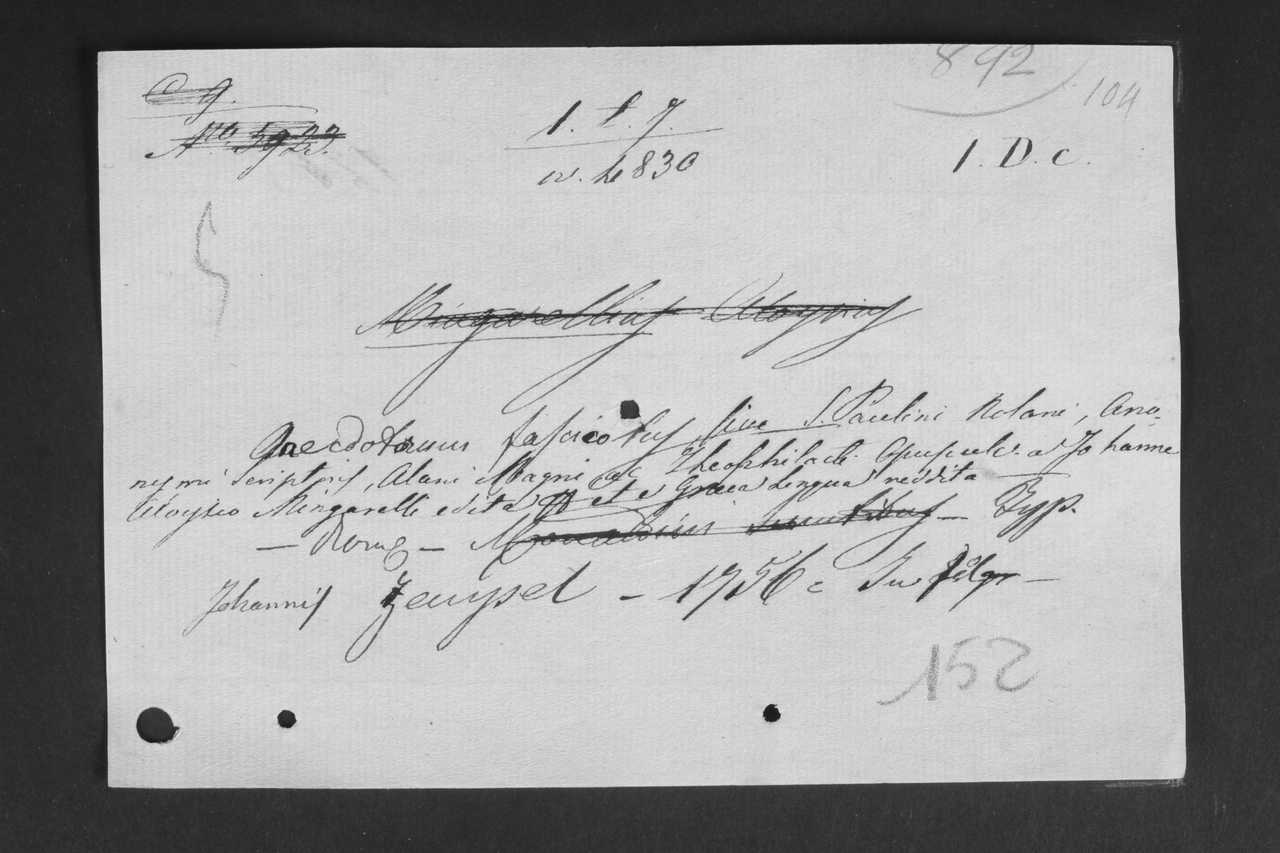 892
104
C. g.
No. 3923.
1. f. 7.
1. D. c.
w. 4830
Mingarellius Aloysius
Anecdotorum fasciculus, sive S. Paulini Nolani, Ano-
nymi Scriptoris, Alani Magni ac Theophilacti Opuscula a Johanne
Aloysio Mingarelli edita et e Graeca Lingua reddita
— Romae — Monaldini sumtibus — Typ.
Johannis Zempel — 1756 — In
152